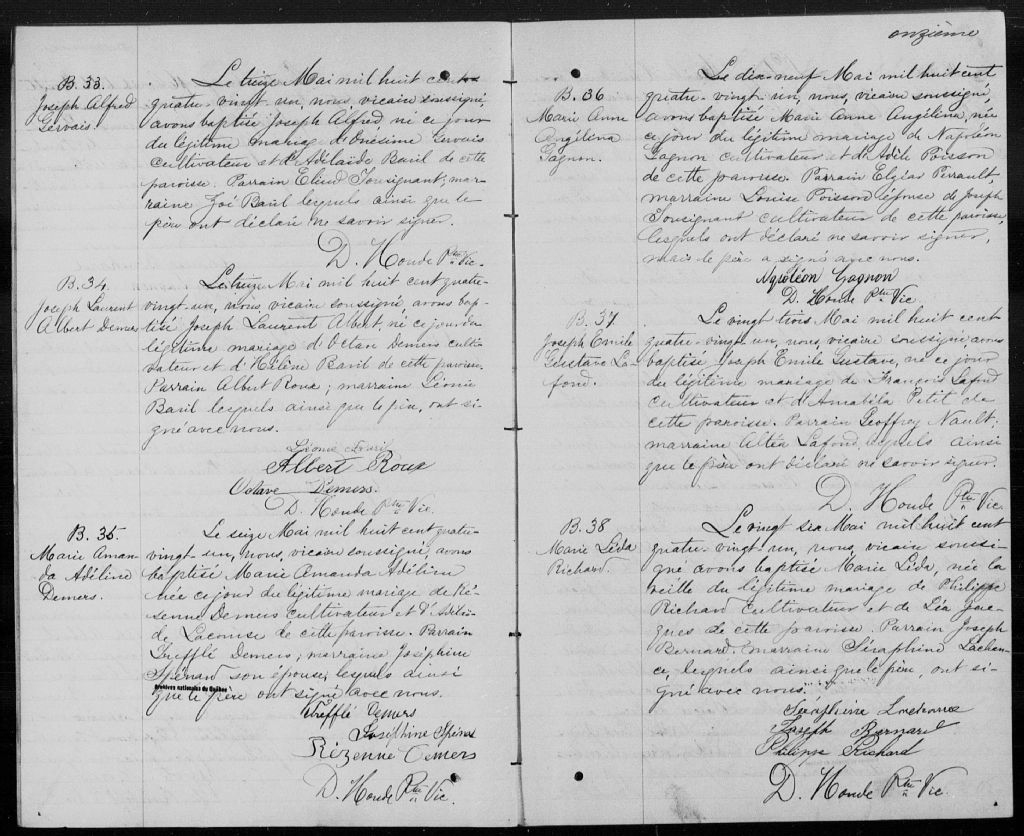 B. 33.
Joseph Alfred
Gervais.
Le treize Mai mil huit cent
quatre-vingt-un, nous, vicaire soussigné,
avons baptisé Joseph Alfred né ce jour
du légitime mariage d'Onésime Gervais
cultivateur et d'Adélaïde Baril de cette
paroisse. Parrain Eliud Tousignant; mar-
raine Zoé Baril lesquels ainsi que le
père ont déclaré ne savoir signer.
D. Houde Ptre Vic.
B. 34.
Joseph Laurent
Albert Demers
Le treize Mai mil huit cent quatre-
vingt-un, nous, vicaire soussigné, avons bap-
tisé Joseph Laurent Albert, né ce jour du
légitime mariage d'Octave Demers culti-
vateur et d'Hélène Baril de cette paroisse.
Parrain Albert Roux; marraine Léonie
Baril lesquels ainsi que le père, ont si-
gné avec nous.
Léonie Baril
Albert Roux
Octave Demers.
D. Houde Ptre Vic.
B. 35.
Marie Aman-
da Adéline
Demers.
Le seize Mai mil huit cent quatre-
vingt-un, nous, vicaire soussigné, avons
baptisé Marie Amanda Adéline
née ce jour du légitime mariage de Ré-
senne Demers cultivateur et d'Adélaï-
de Lacourse de cette paroisse. Parrain
Trefflé Demers; marraine Joséphine
Spénard son épouse lesquels ainsi
Archives nationales du Québec
que le père ont signé avec nous.
Trefflé Demers
Joséphine Spénard
Rézenne Demers
D. Houde Ptre Vic.
onzième
B. 36
Marie Anne
Angélina
Gagnon.
Le dix-neuf Mai mil huit cent
quatre-vingt-un, nous, vicaire soussigné,
avons baptisé Marie Anne Angélina, née
ce jour du légitime mariage de Napoléon
Gagnon cultivateur et d'Adèle Poisson
de cette paroisse. Parrain Elzéar Perrault,
marraine Louise Poisson épouse de Joseph
Tousignant cultivateur de cette paroisse,
lesquels ont déclaré ne savoir signer,
mais le père a signé avec nous.
Napoléon Gagnon
D. Houde Ptre Vic.
B. 37.
Joseph Emile
Gustave La-
fond.
Le vingt trois Mai mil huit cent
quatre-vingt-un, nous, vicaire soussigné avons
baptisé Joseph Emile Gustave, né ce jour
du légitime mariage de François Lafond
cultivateur et d'Amabila Petit de
cette paroisse. Parrain Geoffrey Nault.
marraine Alten Lafond, lesquels ainsi
que le père ont déclaré ne savoir signer.
D. Houde Ptre Vic.
B. 38
Marie Léda
Richard.
Le vingt six Mai mil huit cent
quatre-vingt-un, nous, vicaire soussi-
gné avons baptisé Marie Léda, née la
veille du légitime mariage de Philippe
Richard cultivateur et de Léa Jac-
ques de cette paroisse. Parrain Joseph
Bernard. marraine Séraphine Lachan-
ce, lesquels ainsi que le père, ont si-
gné avec nous.
Séraphine Lachance
Joseph Bernard
Philippe Richard
D. Houde Ptre Vic.